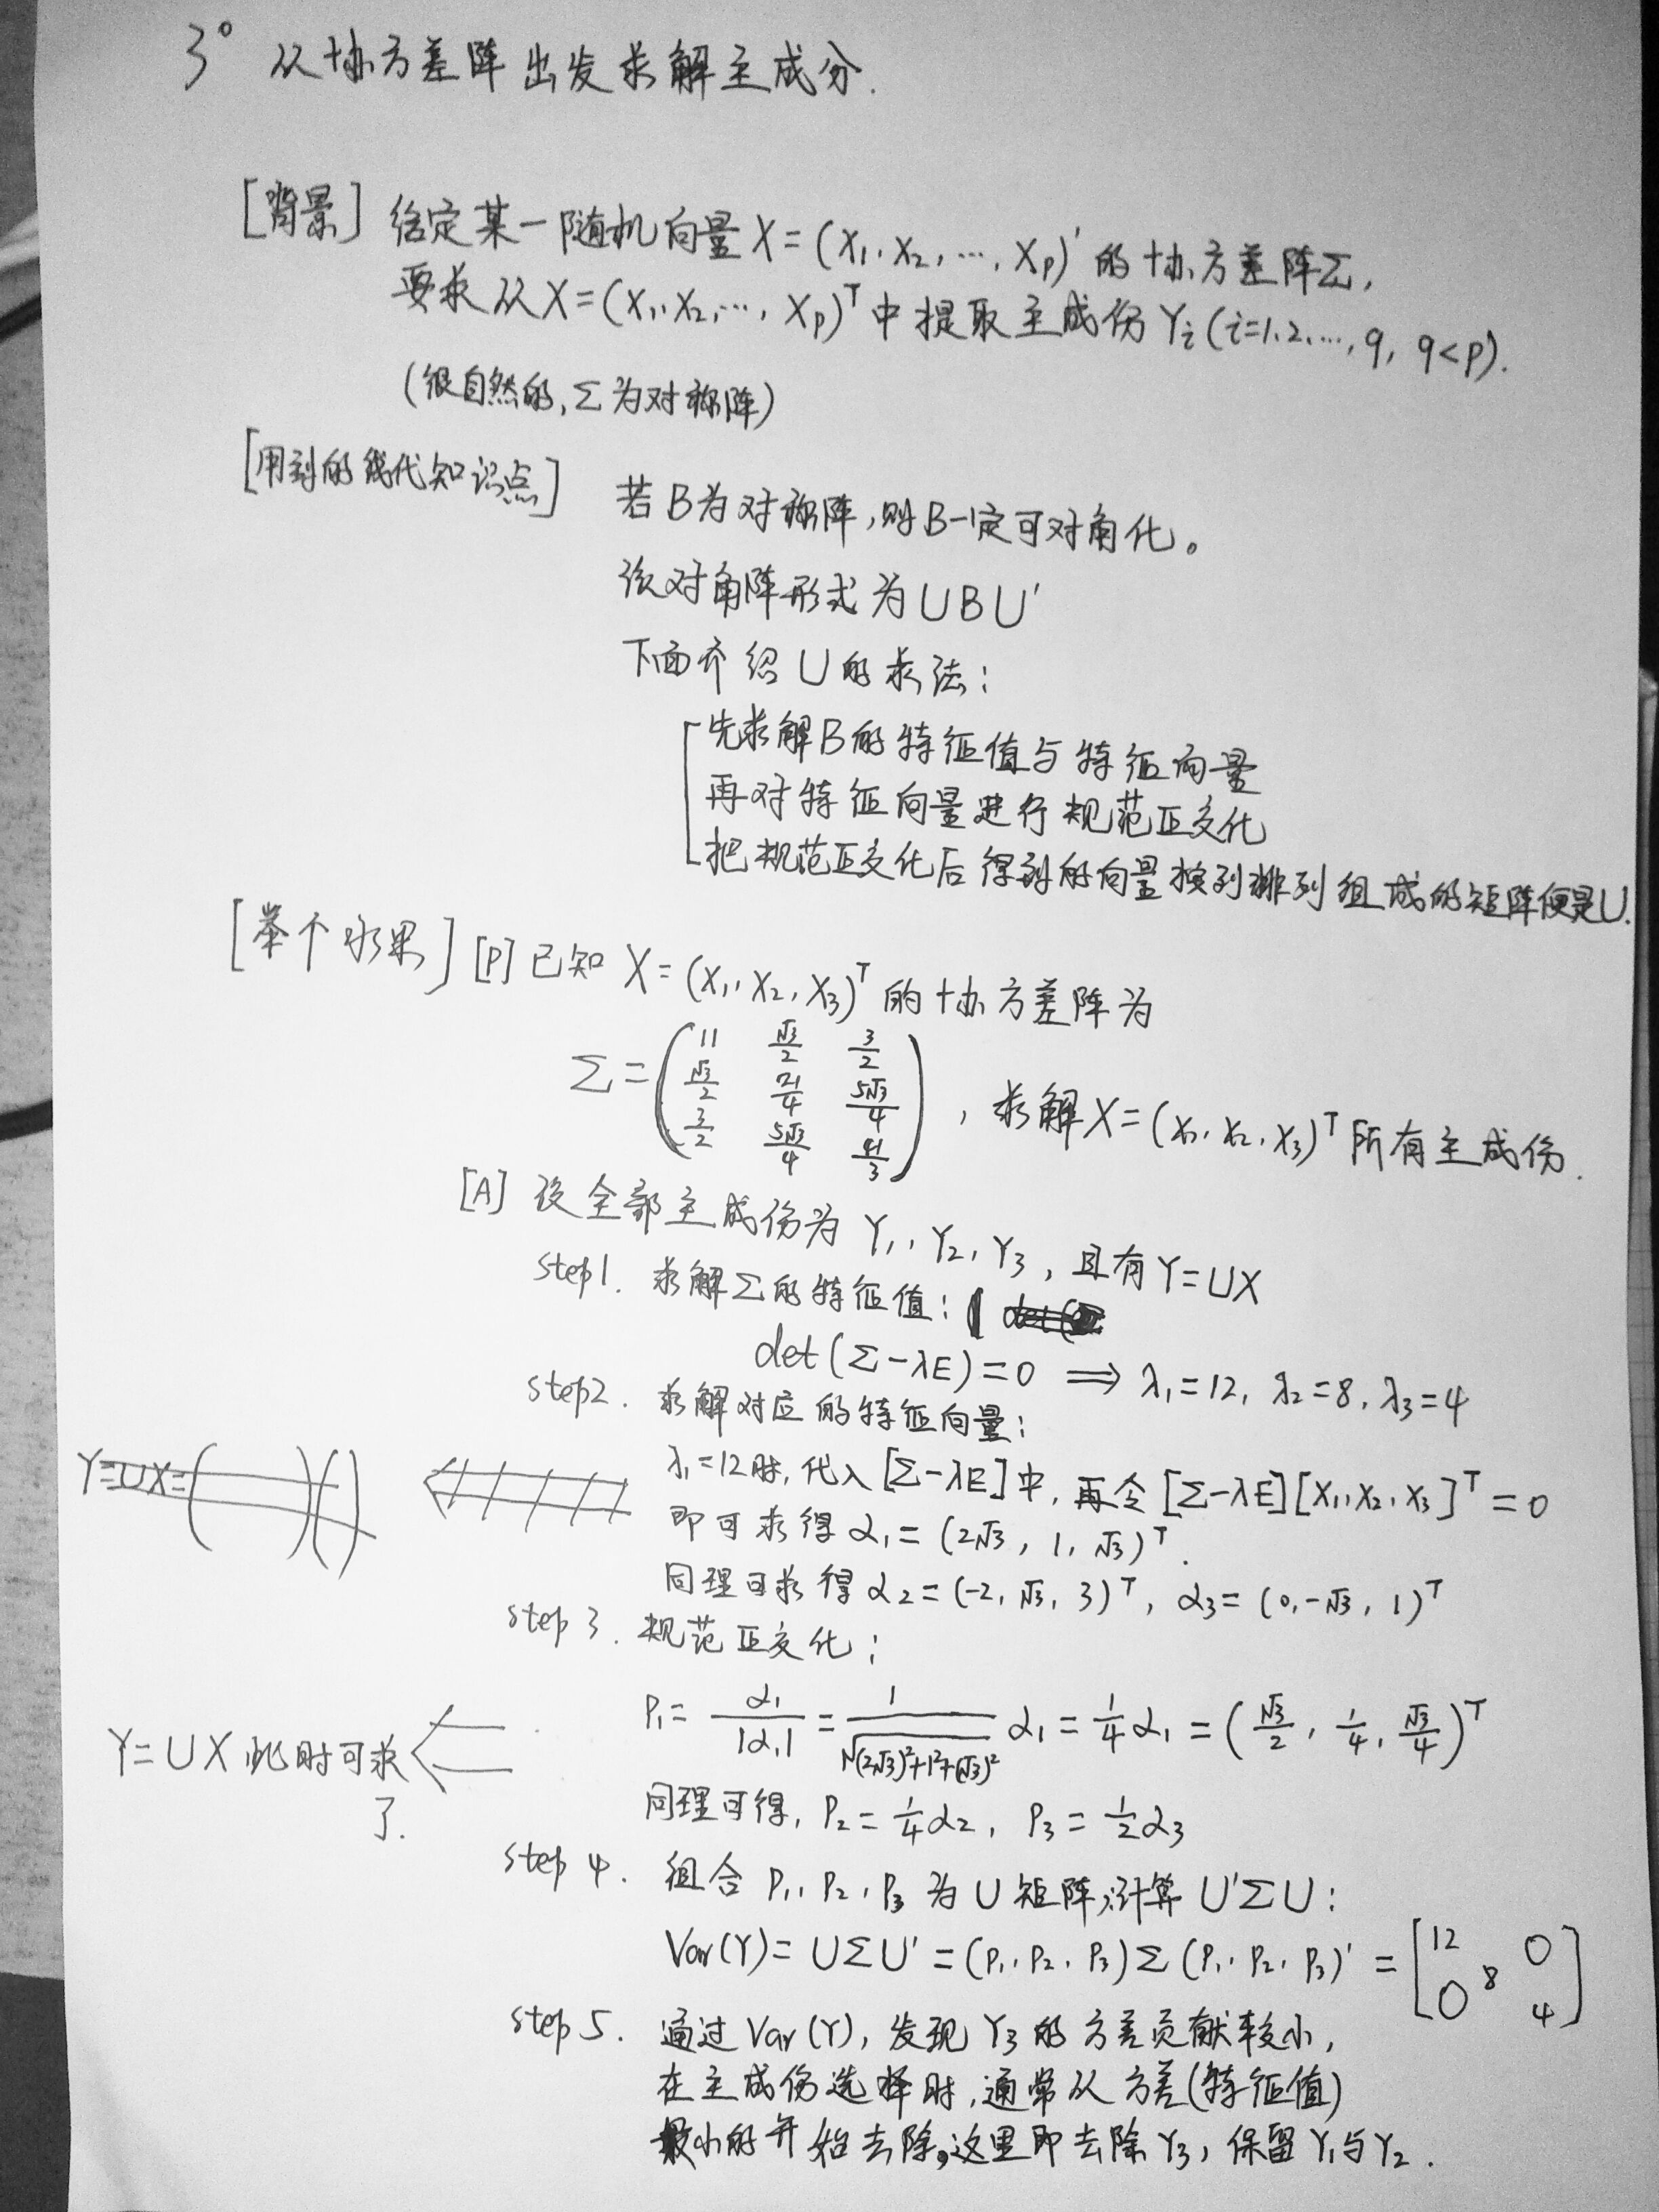 3° 从协方差阵出发求解主成分.
[背景] 给定某一随机向量X=(X₁,X₂,…,Xp)'的协方差阵Σ,
要求从X=(X₁,X₂,…,Xp)ᵀ中提取主成份Yi(i=1.2.…,q, q<p).
(很自然的,Σ为对称阵)
[用到的线代知识点] 若B为对称阵,则B一定可对角化。
该对角阵形式为UBU'
下面介绍U的求法:
先求解B的特征值与特征向量
再对特征向量进行规范正交化
把规范正交化后得到的向量按列排列组成的矩阵便是U.
[举个水果] [P] 已知 X=(X₁,X₂,X₃)ᵀ的协方差阵为
Σ=(11 √3/2 3/2
√3/2 21/4 5√3/4
3/2 5√3/4 41/3), 求解X=(X₁,X₂,X₃)ᵀ所有主成份.
[A] 设全部主成份为 Y₁,Y₂,Y₃, 且有Y=UX
step1. 求解Σ的特征值:
det(Σ-λE)=0 ⟹ λ₁=12, λ₂=8, λ₃=4
step2. 求解对应的特征向量:
λ₁=12时, 代入[Σ-λE]中, 再令[Σ-λE][X₁,X₂,X₃]ᵀ=0
Y=UX=( )( )
即可求得 α₁=(2√3, 1, √3)ᵀ.
同理可求得α₂=(-2, √3, 3)ᵀ, α₃=(0,-√3, 1)ᵀ
step 3. 规范正交化:
P₁=α₁/|α₁|=1/√((2√3)²+1²+(√3)²) α₁=1/4 α₁=(√3/2, 1/4, √3/4)ᵀ
Y=UX 此时可求
了.
同理可得, P₂=1/4 α₂, P₃=1/2 α₃
step 4. 组合 P₁,P₂,P₃ 为U矩阵,计算U'ΣU:
Var(Y)=UΣU'=(P₁,P₂,P₃)Σ(P₁,P₂,P₃)'=[12 0
8
0 4]
step 5. 通过Var(Y), 发现Y₃的方差贡献较小,
在主成份选择时,通常从方差(特征值)
最小的开始去除,这里即去除Y₃, 保留Y₁与Y₂.